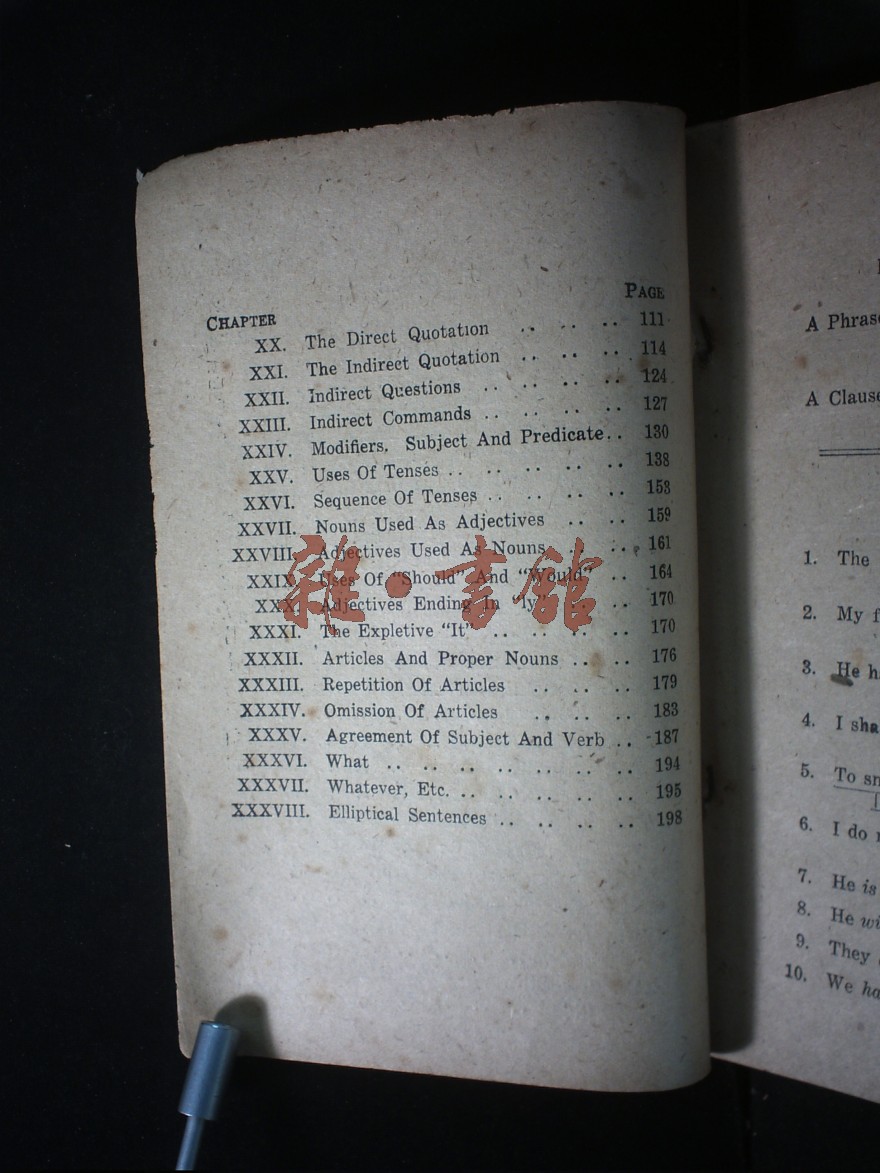 CHAPTER PAGE
XX. The Direct Quotation .. .. .. 111
XXI. The Indirect Quotation .. .. .. 114
XXII. Indirect Questions .. .. .. .. 124
XXIII. Indirect Commands .. .. .. .. 127
XXIV. Modifiers, Subject And Predicate .. 130
XXV. Uses Of Tenses .. .. .. .. .. 138
XXVI. Sequence Of Tenses .. .. .. .. 153
XXVII. Nouns Used As Adjectives .. .. 159
XXVIII. Adjectives Used As Nouns .. .. 161
XXIX. Uses Of "Should" And "Would" .. 164
XXX. Adjectives Ending In "ly" .. .. 170
XXXI. The Expletive "It" .. .. .. .. 170
XXXII. Articles And Proper Nouns .. .. 176
XXXIII. Repetition Of Articles .. .. .. 179
XXXIV. Omission Of Articles .. .. .. 183
XXXV. Agreement Of Subject And Verb .. 187
XXXVI. What .. .. .. .. .. .. .. 194
XXXVII. Whatever, Etc. .. .. .. .. .. 195
XXXVIII. Elliptical Sentences .. .. .. .. 198
雜·書館
A Phrase
A Clause
1. The
2. My
3. He
4. I
5. To
6. I do
7. He is
8. He
9. They
10. We